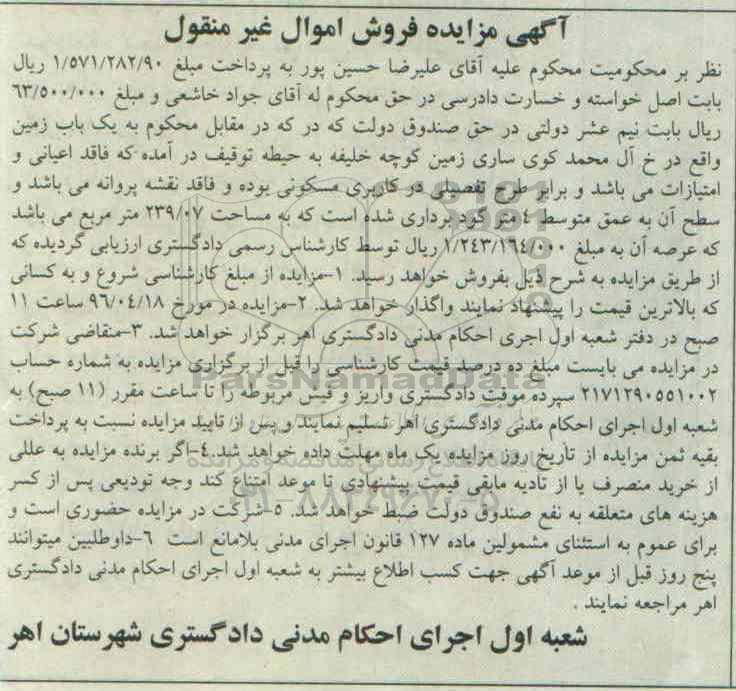 آگهی مزایده فروش اموال غیر منقول
نظر بر محکومیت محکوم علیه آقای علیرضا حسین پور به پرداخت مبلغ ۱/۵۷۱/۲۸۲/۹۰ ریال
بابت اصل خواسته و خسارت دادرسی در حق محکوم له آقای جواد خاشعی و مبلغ ۶۳/۵۰۰/۰۰۰
ریال بابت نیم عشر دولتی در حق صندوق دولت که در که در مقابل محکوم به یک باب زمین
واقع در خ آل محمد کوی ساری زمین کوچه خلیفه به حیطه توقیف در آمده که فاقد اعیانی و
امتیازات می باشد و برابر طرح تفصیلی در کاربری مسکونی بوده و فاقد نقشه پروانه می باشد و
سطح آن به عمق متوسط ٤ متر گود برداری شده است که به مساحت ۲۳۹/۰۷ متر مربع می باشد
که عرصه آن به مبلغ ۱/۲٤۳/۱٦٤/۰۰۰ ریال توسط کارشناس رسمی دادگستری ارزیابی گردیده که
از طریق مزایده به شرح ذیل بفروش خواهد رسید. ۱-مزایده از مبلغ کارشناسی شروع و به کسانی
که بالاترین قیمت را پیشنهاد نمایند واگذار خواهد شد. ۲-مزایده در مورخ ۹٦/۰٤/۱۸ ساعت ۱۱
صبح در دفتر شعبه اول اجری احکام مدنی دادگستری اهر برگزار خواهد شد. ۳-متقاضی شرکت
در مزایده می بایست مبلغ ده درصد قیمت کارشناسی را قبل از برگزاری مزایده به شماره حساب
۲۱۷۱۲۹۰۵۵۱۰۰۲ سپرده موقت دادگستری واریز و فیش مربوطه را تا ساعت مقرر (۱۱ صبح) به
شعبه اول اجرای احکام مدنی دادگستری اهر تسلیم نمایند و پس از تایید مزایده نسبت به پرداخت
بقیه ثمن مزایده از تاریخ روز مزایده یک ماه مهلت داده خواهد شد.٤-اگر برنده مزایده به عللی
از خرید منصرف یا از تادیه مابقی قیمت پیشنهادی تا موعد امتناع کند وجه تودیعی پس از کسر
هزینه های متعلقه به نفع صندوق دولت ضبط خواهد شد. ۵-شرکت در مزایده حضوری است و
برای عموم به استثنای مشمولین ماده ۱۲۷ قانون اجرای مدنی بلامانع است ٦-داوطلبین میتوانند
پنج روز قبل از موعد آگهی جهت کسب اطلاع بیشتر به شعبه اول اجرای احکام مدنی دادگستری
اهر مراجعه نمایند .
شعبه اول اجرای احکام مدنی دادگستری شهرستان اهر
ParsNamadData